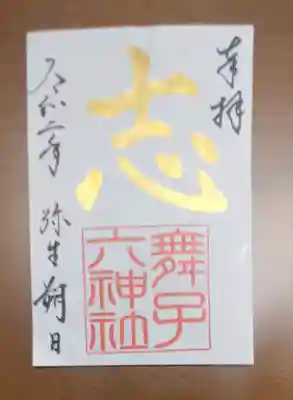 奉拝
志
舞子
六神社
令和二年 弥生朔日